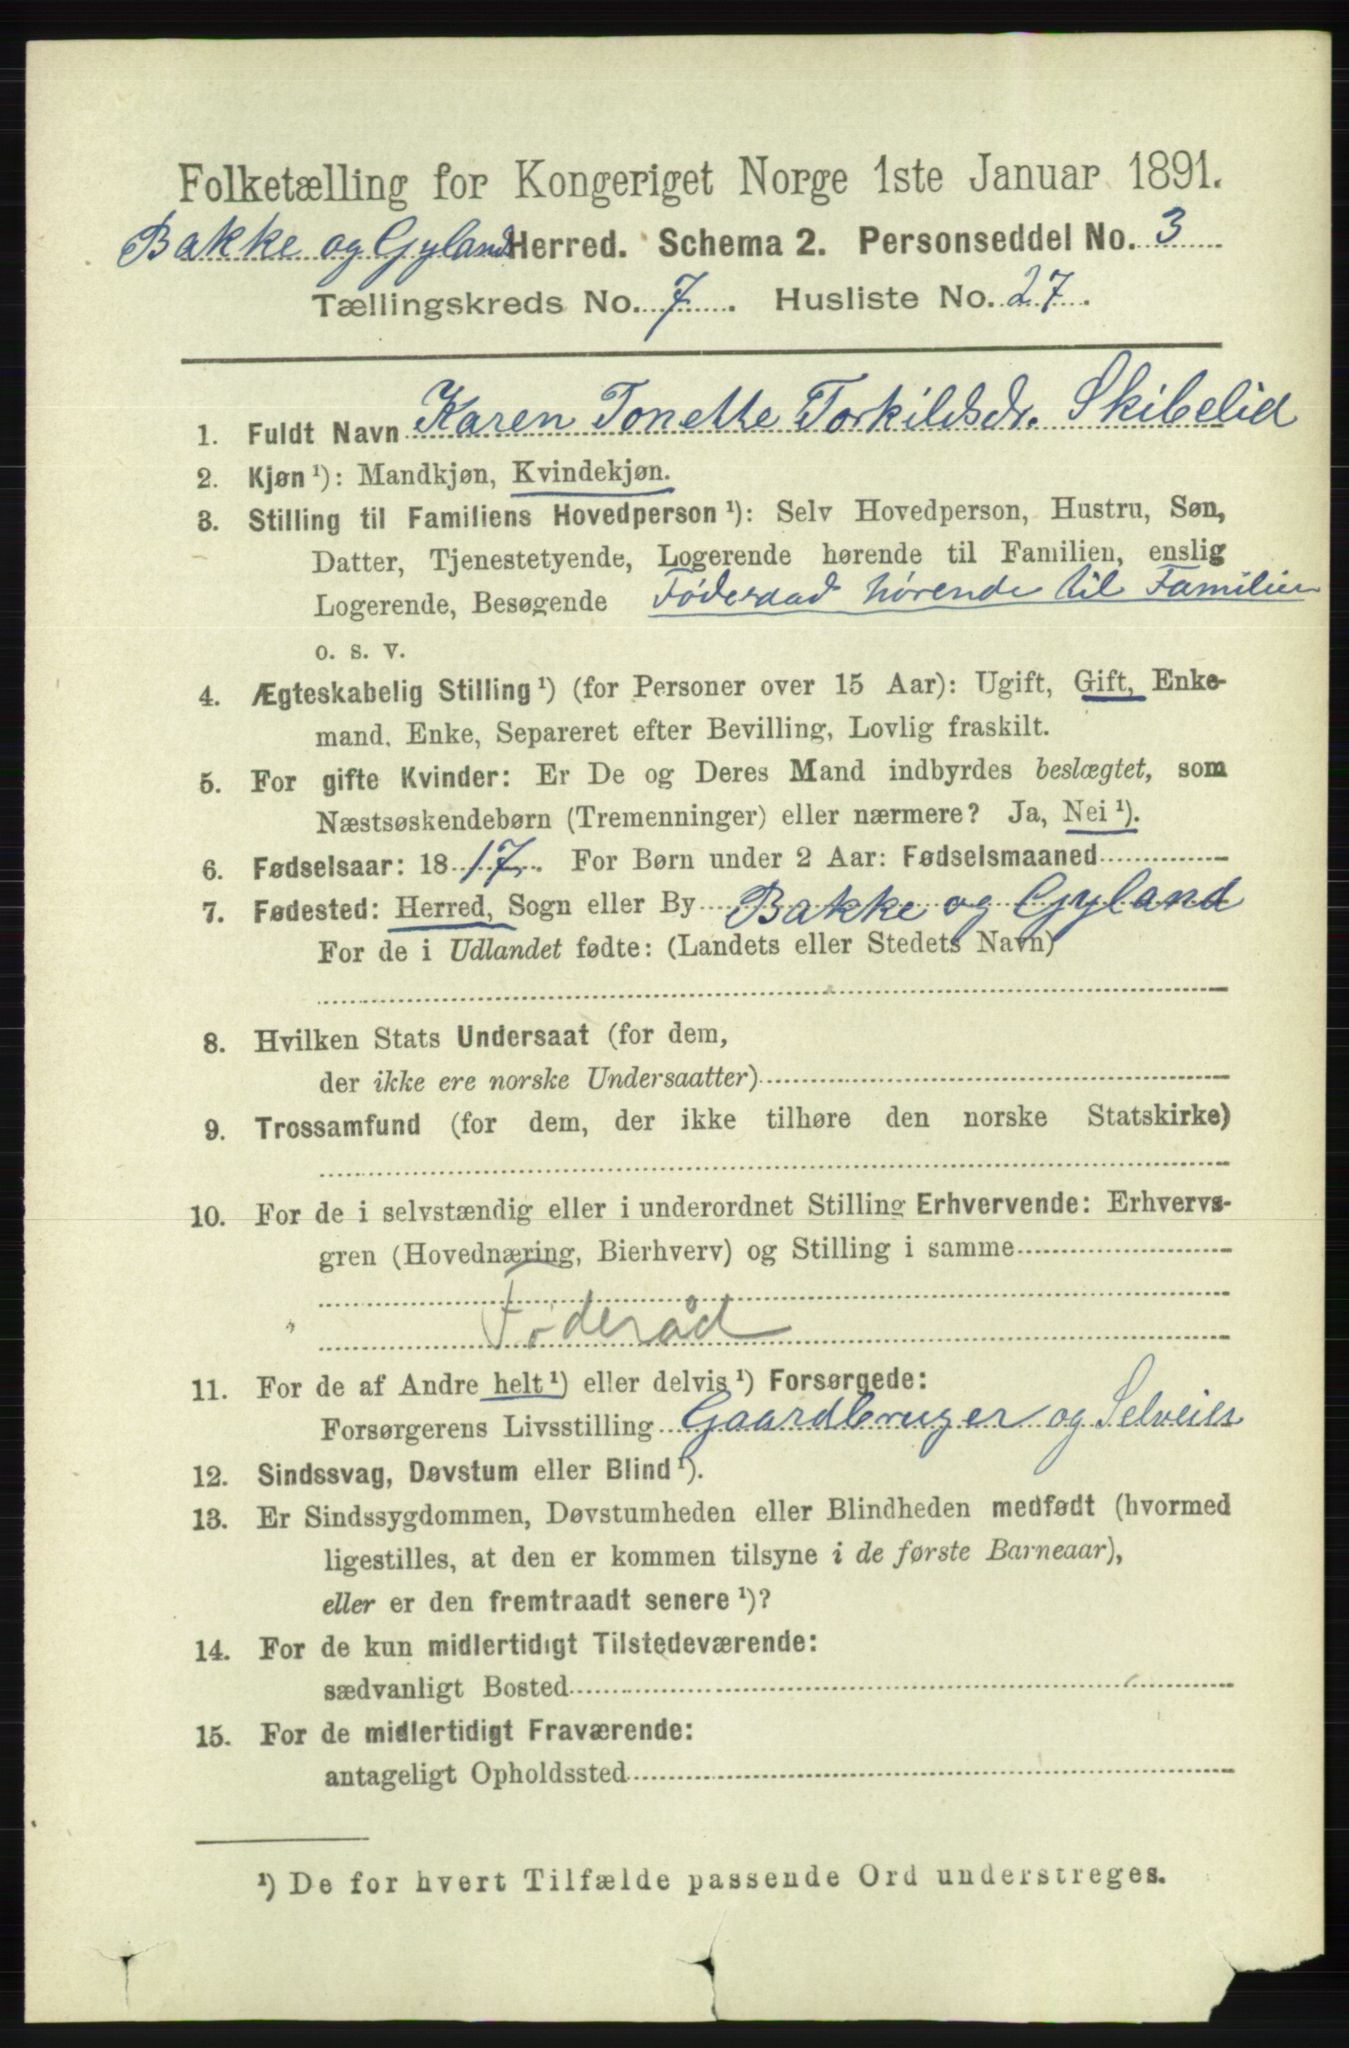 Folketælling for Kongeriget Norge 1ste Januar 1891.
Bakke og Gyland Herred. Schema 2. Personseddel No. 3
Tællingskreds No. 7. Husliste No. 27.
1. Fuldt Navn Karen Tonette Torkildsdr. Skibelid
2. Kjøn ¹): Mandkjøn, Kvindekjøn.
3. Stilling til Familiens Hovedperson ¹): Selv Hovedperson, Hustru, Søn,
Datter, Tjenestetyende, Logerende hørende til Familien, enslig
Logerende, Besøgende Føderaad hørende til Familien
o. s. v.
4. Ægteskabelig Stilling ¹) (for Personer over 15 Aar): Ugift, Gift, Enke-
mand, Enke, Separeret efter Bevilling, Lovlig fraskilt.
5. For gifte Kvinder: Er De og Deres Mand indbyrdes beslægtet, som
Næstsøskendebørn (Tremenninger) eller nærmere? Ja, Nei ¹).
6. Fødselsaar: 1817. For Børn under 2 Aar: Fødselsmaaned
7. Fødested: Herred, Sogn eller By Bakke og Gyland
For de i Udlandet fødte: (Landets eller Stedets Navn)
8. Hvilken Stats Undersaat (for dem,
der ikke ere norske Undersaatter)
9. Trossamfund (for dem, der ikke tilhøre den norske Statskirke)
10. For de i selvstændig eller i underordnet Stilling Erhvervende: Erhvervs-
gren (Hovednæring, Bierhverv) og Stilling i samme
Føderåd
11. For de af Andre helt ¹) eller delvis ¹) Forsørgede:
Forsørgerens Livsstilling Gaardbruger og Selveier
12. Sindssvag, Døvstum eller Blind ¹).
13. Er Sindssygdommen, Døvstumheden eller Blindheden medfødt (hvormed
ligestilles, at den er kommen tilsyne i de første Barneaar),
eller er den fremtraadt senere ¹)?
14. For de kun midlertidigt Tilstedeværende:
sædvanligt Bosted
15. For de midlertidigt Fraværende:
antageligt Opholdssted
¹) De for hvert Tilfælde passende Ord understreges.